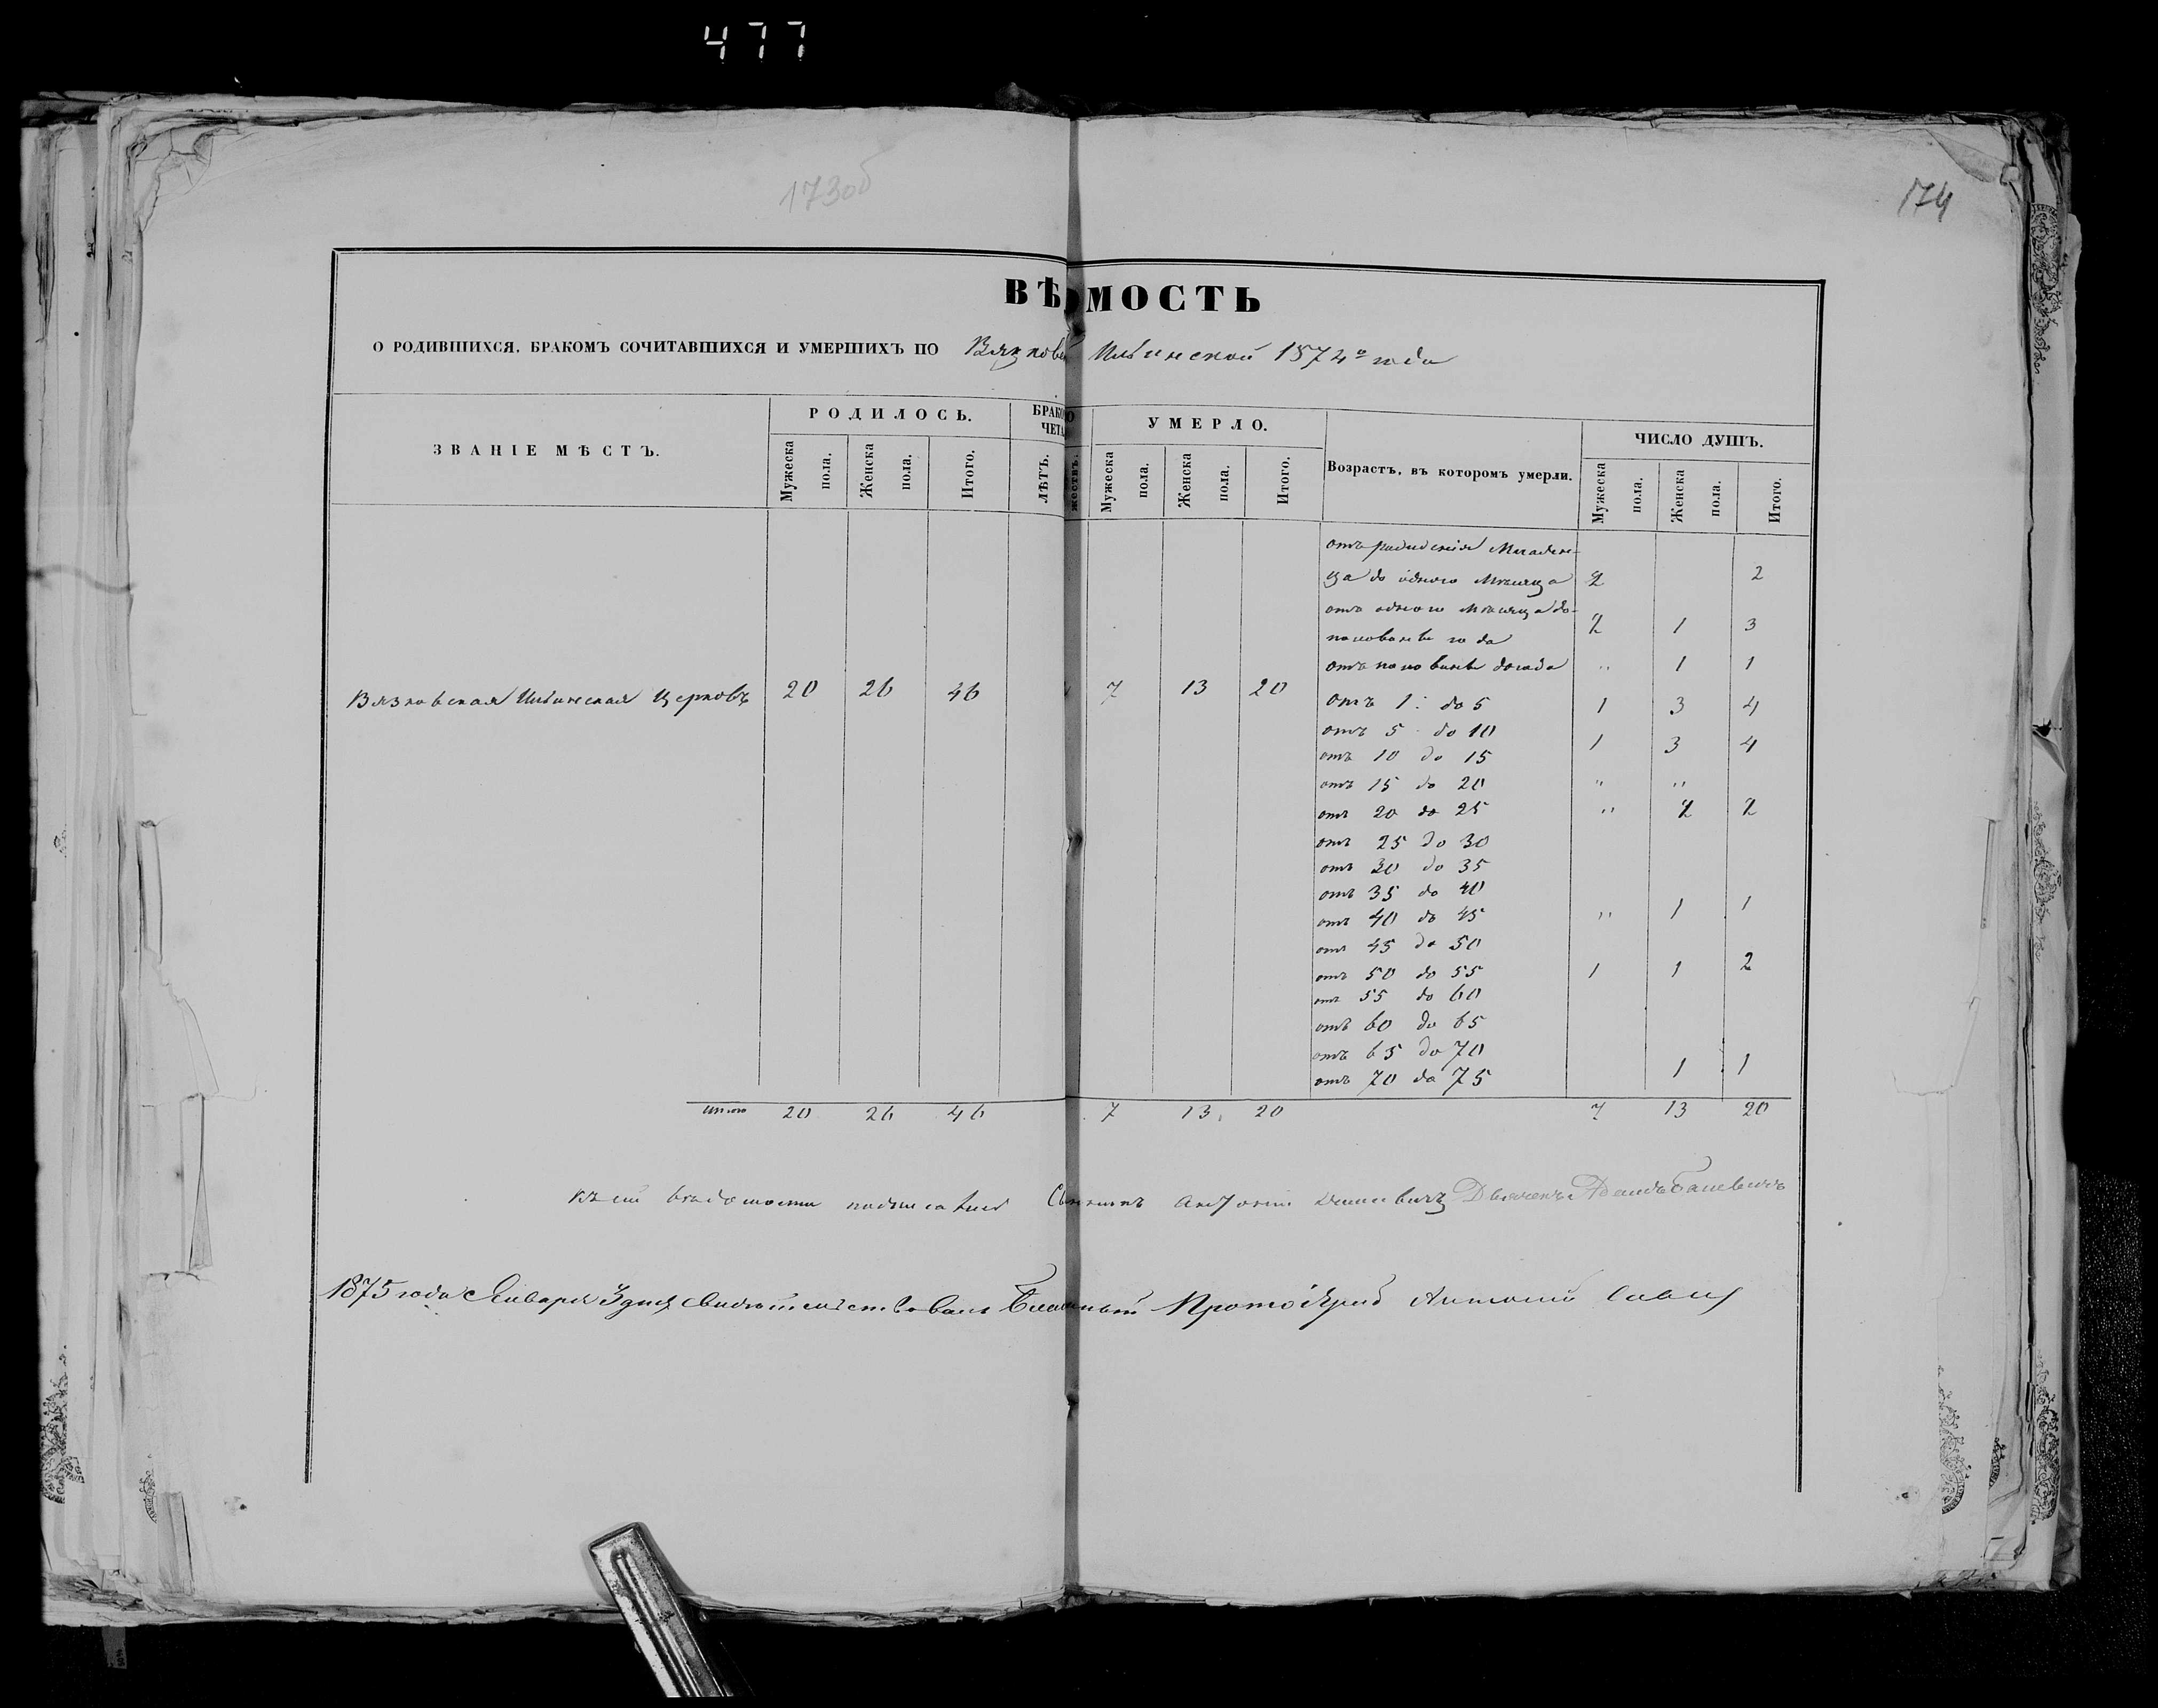 477
173об
174
ВѢДОМОСТЬ
О РОДИВШИХСЯ, БРАКОМЪ СОЧИТАВШИХСЯ И УМЕРШИХЪ ПО Вязков Ильинской 1874го года
ЗВАНІЕ МѢСТЪ.
РОДИЛОСЬ.
БРАКО
ЧЕТА
УМЕРЛО.
Возрастъ, въ которомъ умерли.
ЧИСЛО ДУШЪ.
Мужеска пола.
Женска пола.
Итого.
ЛѢТЪ.
жествъ.
Мужеска пола.
Женска пола.
Итого.
Мужеска пола.
Женска пола.
Итого.
отъ рождения Младен-
ца до одного Мѣсяца 2 2
отъ одного Мѣсяца до-
половины года 2 1 3
отъ половины до года " 1 1
Вязковская Ильинская Церковь 20 26 46 7 13 20 отъ 1 до 5 1 3 4
отъ 5 до 10
отъ 10 до 15 1 3 4
отъ 15 до 20 " "
отъ 20 до 25 " 2 2
отъ 25 до 30
отъ 30 до 35
отъ 35 до 40
отъ 40 до 45 " 1 1
отъ 45 до 50
отъ 50 до 55 1 1 2
отъ 55 до 60
отъ 60 до 65
отъ 65 до 70
отъ 70 до 75 1 1
Итого 20 26 46 7 13 20 7 13 20
Къ сей вѣдомости подписались Антоній
1875 года Января 3 дня свидѣтельствовалъ Протоіерей Антоній